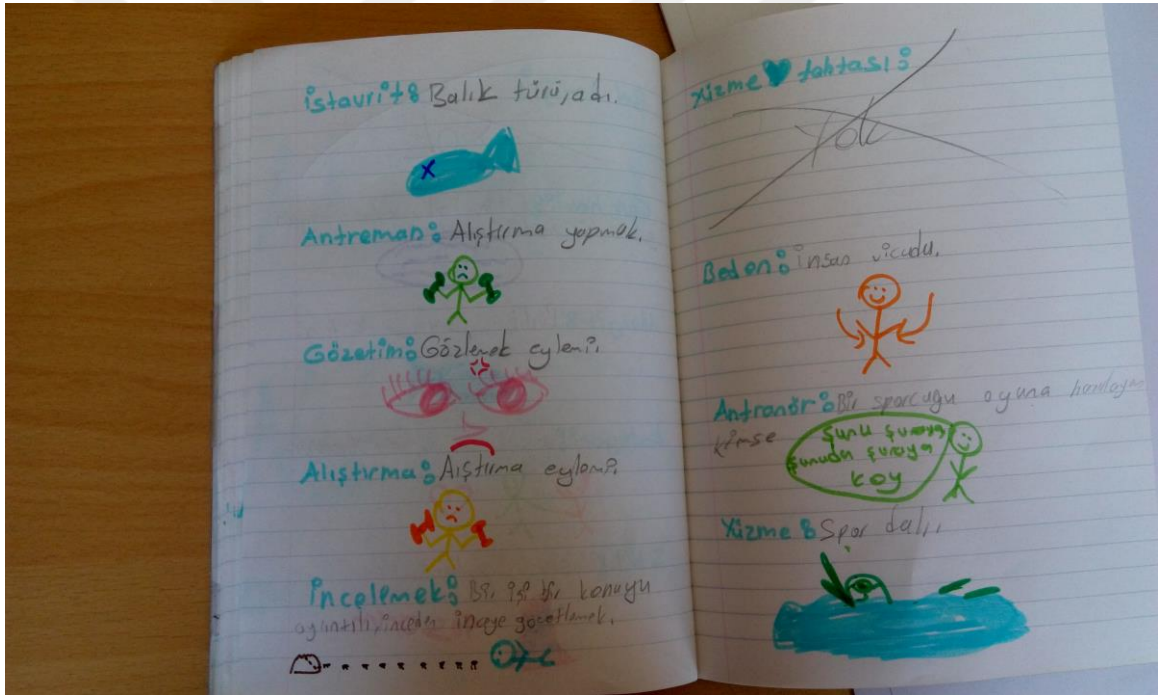 İstavrit: Balık türü, adı.
Antreman: Alıştırma yapmak.
Gözetim: Gözlemek eylemi.
Alıştırma: Alıştırma eylemi.
İncelemek: Bir işi bir konuyu
ayrıntılı, inceden inceye gözetlemek.
Yüzme tahtası:
Yok
Beden: İnsan vücudu.
Antronör: Bir sporcuğu oyuna hazırlayan
kimse
şunu şuraya
şunuda şuraya
koy
Yüzme: Spor dalı.